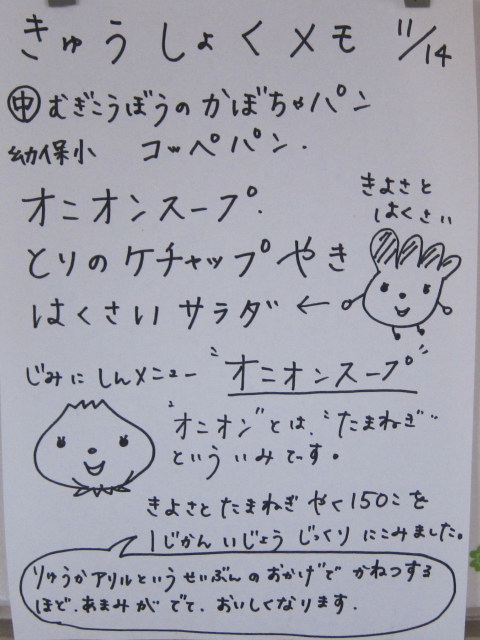 きゅうしょくメモ 11/14
㊥ むぎこうぼうのかぼちゃパン
幼保小 コッペパン.
オニオンスープ.
きよさと
はくさい
とりのケチャップやき
はくさいサラダ ←
じみにしんメニュー "オニオンスープ"
"オニオン"とは、"たまねぎ"
といういみです。
きよさとたまねぎ やく150こを
1じかんいじょうじっくりにこみました。
りゅうかアリルというせいぶんのおかげでかねつする
ほど、あまみがでて、おいしくなります.